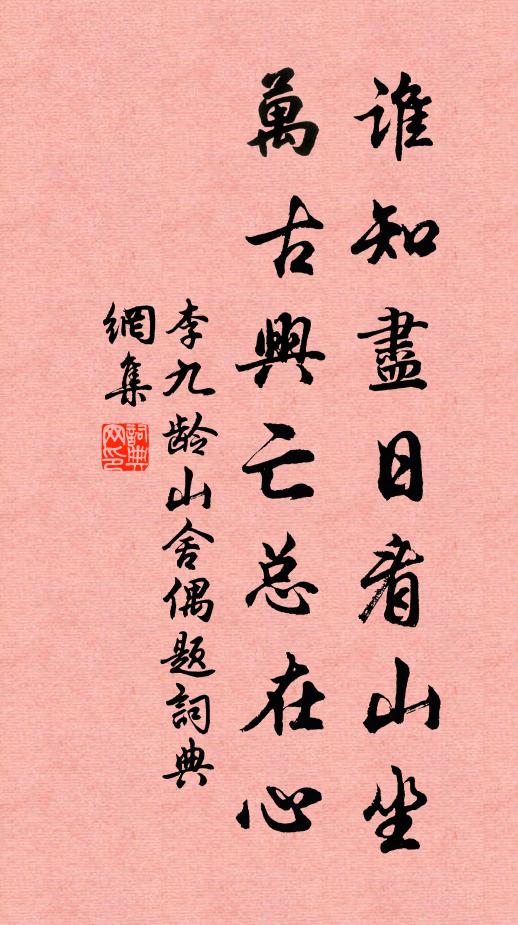 誰知盡日看山坐
萬古興亡总在心
李九龄山舍偶题詞典
網集
詞典网印